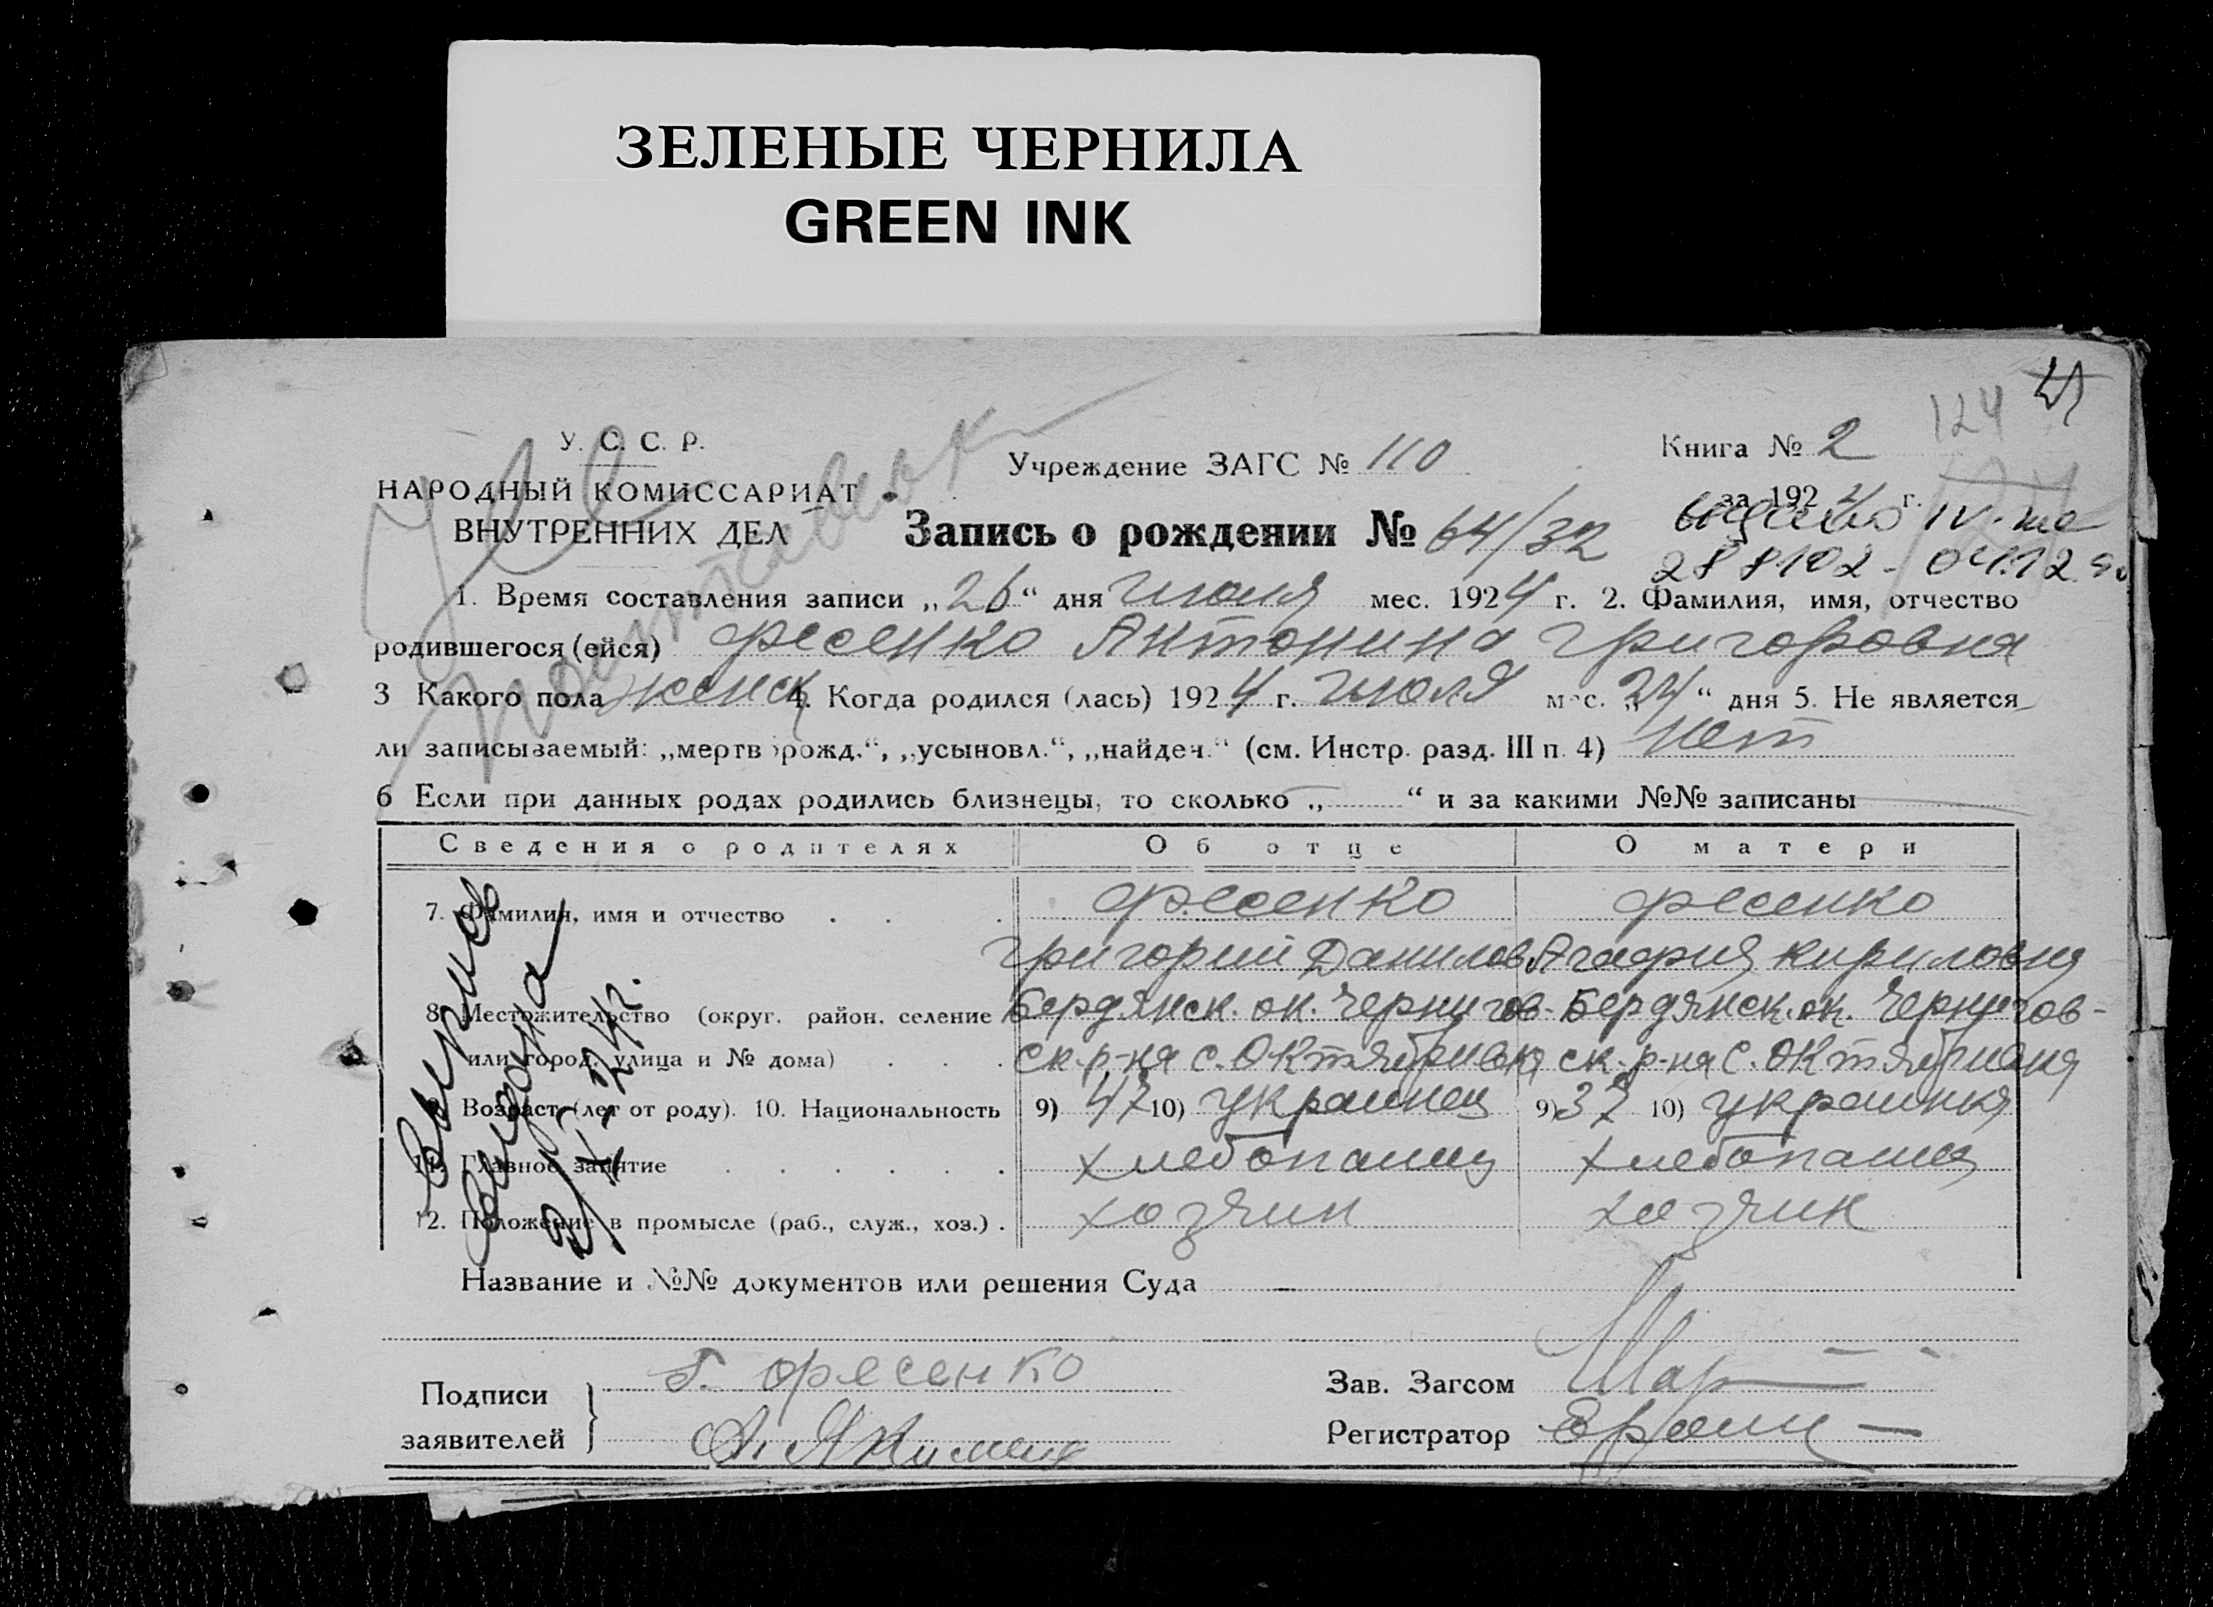 ЗЕЛЕНЫЕ ЧЕРНИЛА
GREEN INK
124
У. С. С. Р.
НАРОДНЫЙ КОМИССАРИАТ
ВНУТРЕННИХ ДЕЛ
Учреждение ЗАГС № 110
Книга № 2
за 1924 г.
Запись о рождении № 64/32
выдано IV-
288102 - 04.12.
1. Время составления записи „26“ дня июля мес. 1924 г. 2. Фамилия, имя, отчество
родившегося (ейся) Фесенко Антонина Григоровна
3 Какого пола женск 4. Когда родился (лась) 1924 г. июля мес. „24“ дня 5. Не является
ли записываемый: „мертворожд.“, „усыновл.“, „найден.“ (см. Инстр. разд. III п. 4) нет
6 Если при данных родах родились близнецы, то сколько „ “ и за какими №№ записаны
Сведения о родителях Об отце О матери
7. Фамилия, имя и отчество . . . Фесенко Фесенко
Григорий Данилов Агафия Кириловна
8. Местожительство (округ. район. селение Бердянск. ок. Чернигов- Бердянск. ок. Чернигов-
или город, улица и № дома) . . . ск. р-на с. Октябривка ск. р-на с. Октябривка
9. Возраст (лет от роду). 10. Национальность 9) 47 10) украинец 9) 37 10) украинка
11. Главное занятие . . . . . . хлебопашец хлебопашец
12. Положение в промысле (раб., служ., хоз.) . хозяин хозяин
Выпись
выдана
Название и №№ документов или решения Суда
Подписи
заявителей
Г. Фесенко
А. Якимец
Зав. Загсом
Регистратор